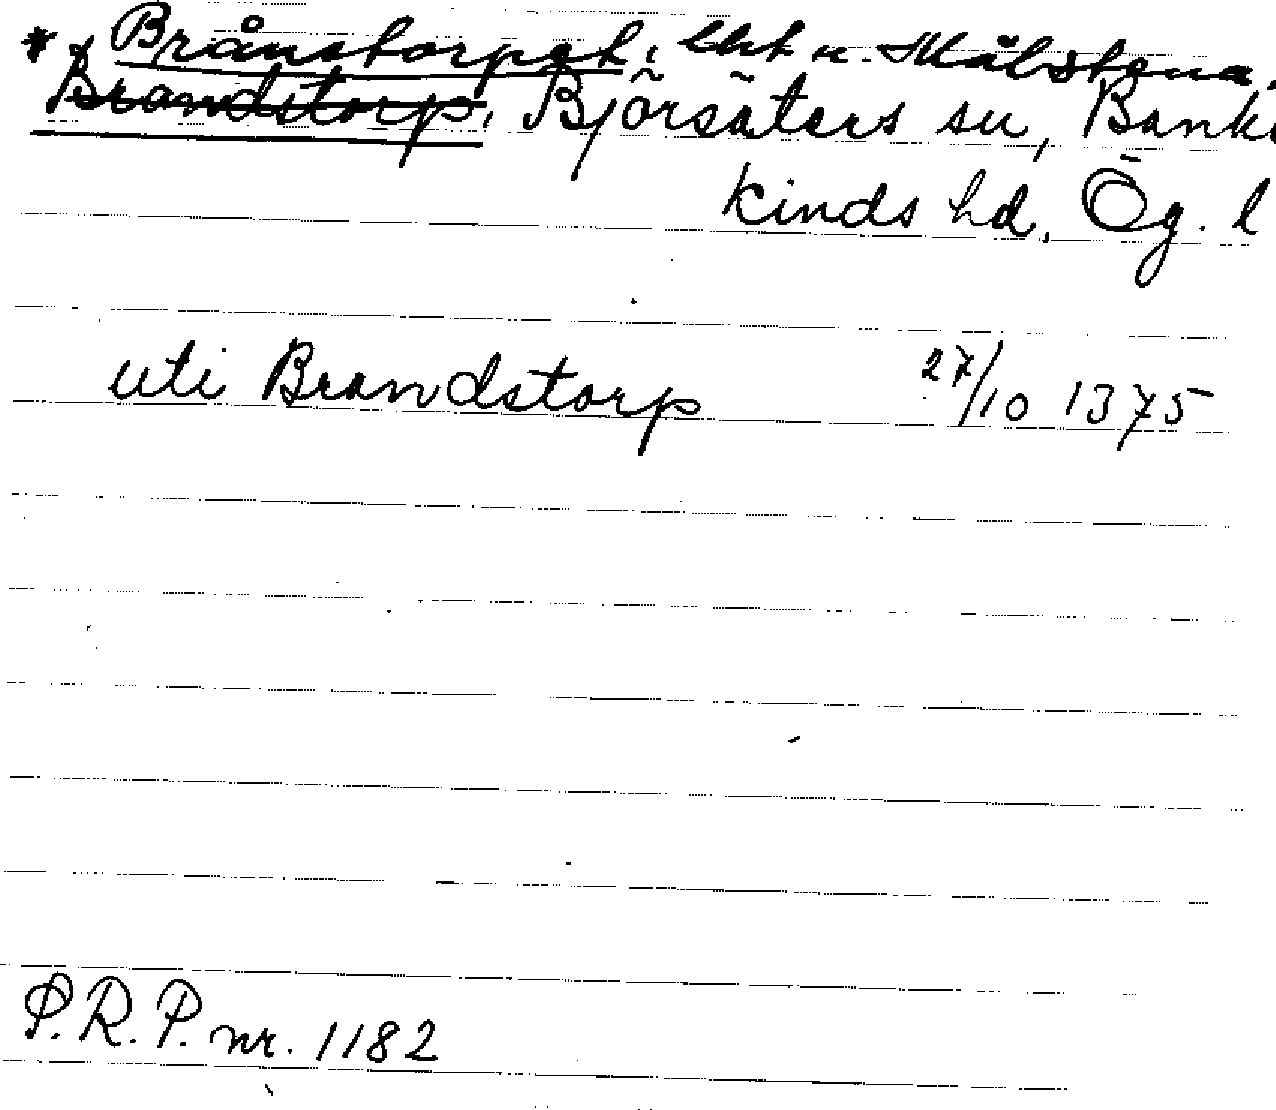 * Brånstorpet, lht u. Målstena,
x Brandstorp, Björsäters sn, Banke
kinds hd, Ög. l
uti Brandstorp 27/10 1375
P.R.P. nr. 1182